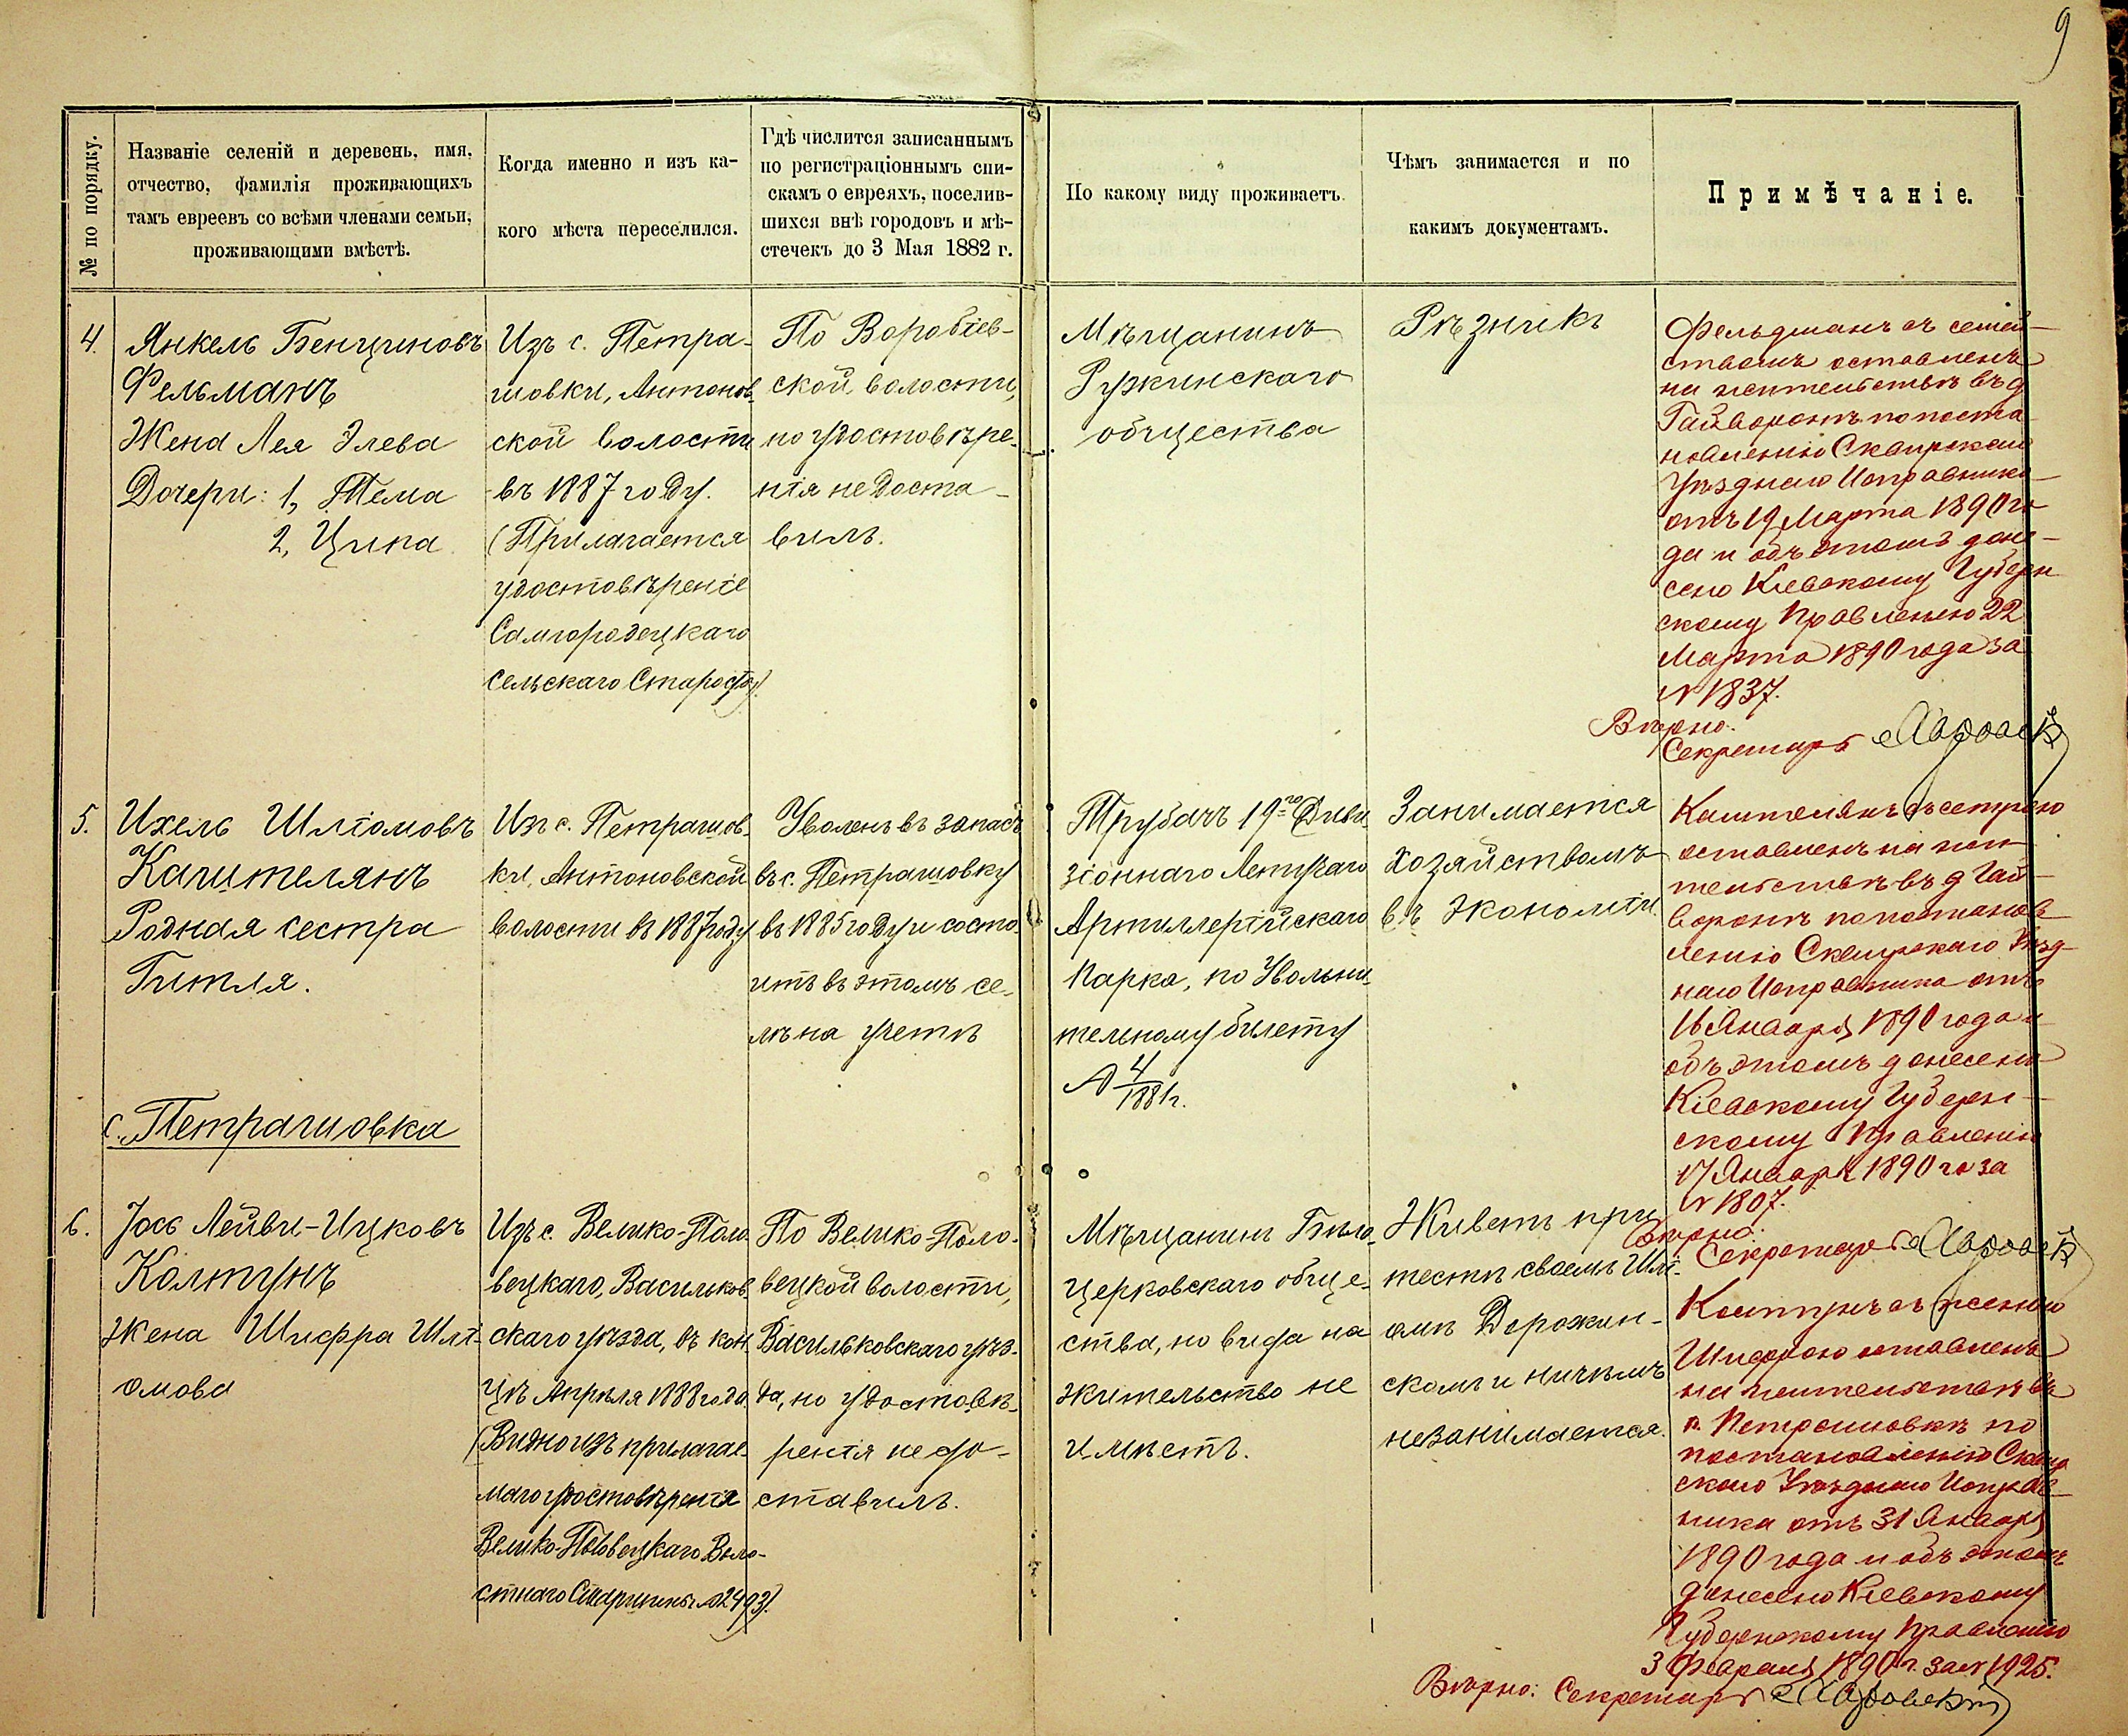 9
№ по порядку.
Названіе селеній и деревень, имя,
отчество, фамилія проживающихъ
тамъ евреевъ со всѣми членами семьи,
проживающими вмѣстѣ.
Когда именно и изъ ка-
кого мѣста переселился.
Гдѣ числится записаннымъ
по регистраціоннымъ спи-
скамъ о евреяхъ, поселив-
шихся внѣ городовъ и мѣ-
стечекъ до 3 Мая 1882 г.
По какому виду проживаетъ.
Чѣмъ занимается и по
какимъ документамъ.
Примѣчаніе.
4.
Янкель Бенциновъ
Фельманъ
Жена Лея Элева
Дочери: 1, Тема
2, Ципа
Изъ с. Петра-
шовки, Антонов-
ской волости
въ 1887 году.
(Прилагается
удостовѣреніе
Самгородецкаго
сельскаго Старосты).
По Воробіев-
ской волости,
но удостовѣре-
нія не доста-
вилъ.
Мѣщанинъ
Ружинскаго
общества
Рѣзникъ
Фельдманъ съ семей-
ствомъ оставленъ
на жительствѣ въ д
Гайворонѣ по поста-
новленію Сквирскаго
Уѣзднаго Исправника
отъ 19 Марта 1890 го
да и объ этомъ доне-
сено Кіевскому Губерн
скому Правленію 22
Марта 1890 года за
№ 1837.
Вѣрно:
Секретарь
5.
Ихель Шліомовъ
Каштелянъ
Родная сестра
Гитля.
Изъ с. Петрашов-
ки, Антоновской
волости въ 1887 году
Уволенъ въ запасъ
въ с. Петрашовку
въ 1885 году и состо-
итъ въ этомъ се-
лѣ на учетѣ
Трубачъ 19-го Диви-
зіоннаго Летучаго
Артиллерійскаго
Парка, по Увольни-
тельному билету
№ 4/1881 г.
Занимается
хозяйствомъ
въ Экономіи
Каштелянъ съ сестрою
оставленъ на жи-
тельствѣ въ д Гай-
воронѣ по постанов
ленію Сквирскаго Уѣзд-
наго Исправника отъ
16 Января 1890 года и
объ этомъ донесено
Кіевскому Губерн-
скому Правленію
17 Января 1890 го за
№ 1807.
Вѣрно:
Секретарь
с. Петрашовка
6.
Іось Лейви-Ицковъ
Колтунъ
Жена Шифра Шлі-
омова
Изъ с. Велико-Поло-
вецкаго, Васильков-
скаго уѣзда, въ кон-
цѣ Апрѣля 1888 года.
(Видно изъ прилагае-
маго удостовѣренія
Велико-Половецкаго Воло-
стнаго Старшины № 2493).
По Велико-Поло-
вецкой волости,
Васильковскаго уѣз-
да, но удостовѣ-
ренія не до-
ставилъ.
Мѣщанинъ Бѣло-
церковскаго обще-
ства, но вида на
жительство не
имѣетъ.
Живетъ при
тестѣ своемъ Шлі-
омѣ Дорожин-
скомъ и ничѣмъ
незанимается.
Колтунъ съ женою
Шифрою оставленъ
на жительствѣ въ
с. Петрашовкѣ по
постановленію Сквир
скаго Уѣзднаго Исправ-
ника отъ 31 Января
1890 года и объ этомъ
донесено Кіевскому
Губернскому Правленію
3 Февраля 1890 г. за № 1925.
Вѣрно: Секретарь